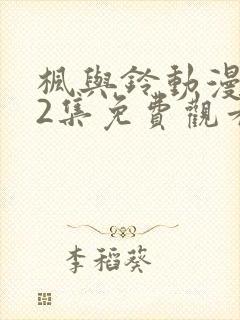 楓與鈴動漫
2集免費觀看
李稻葵